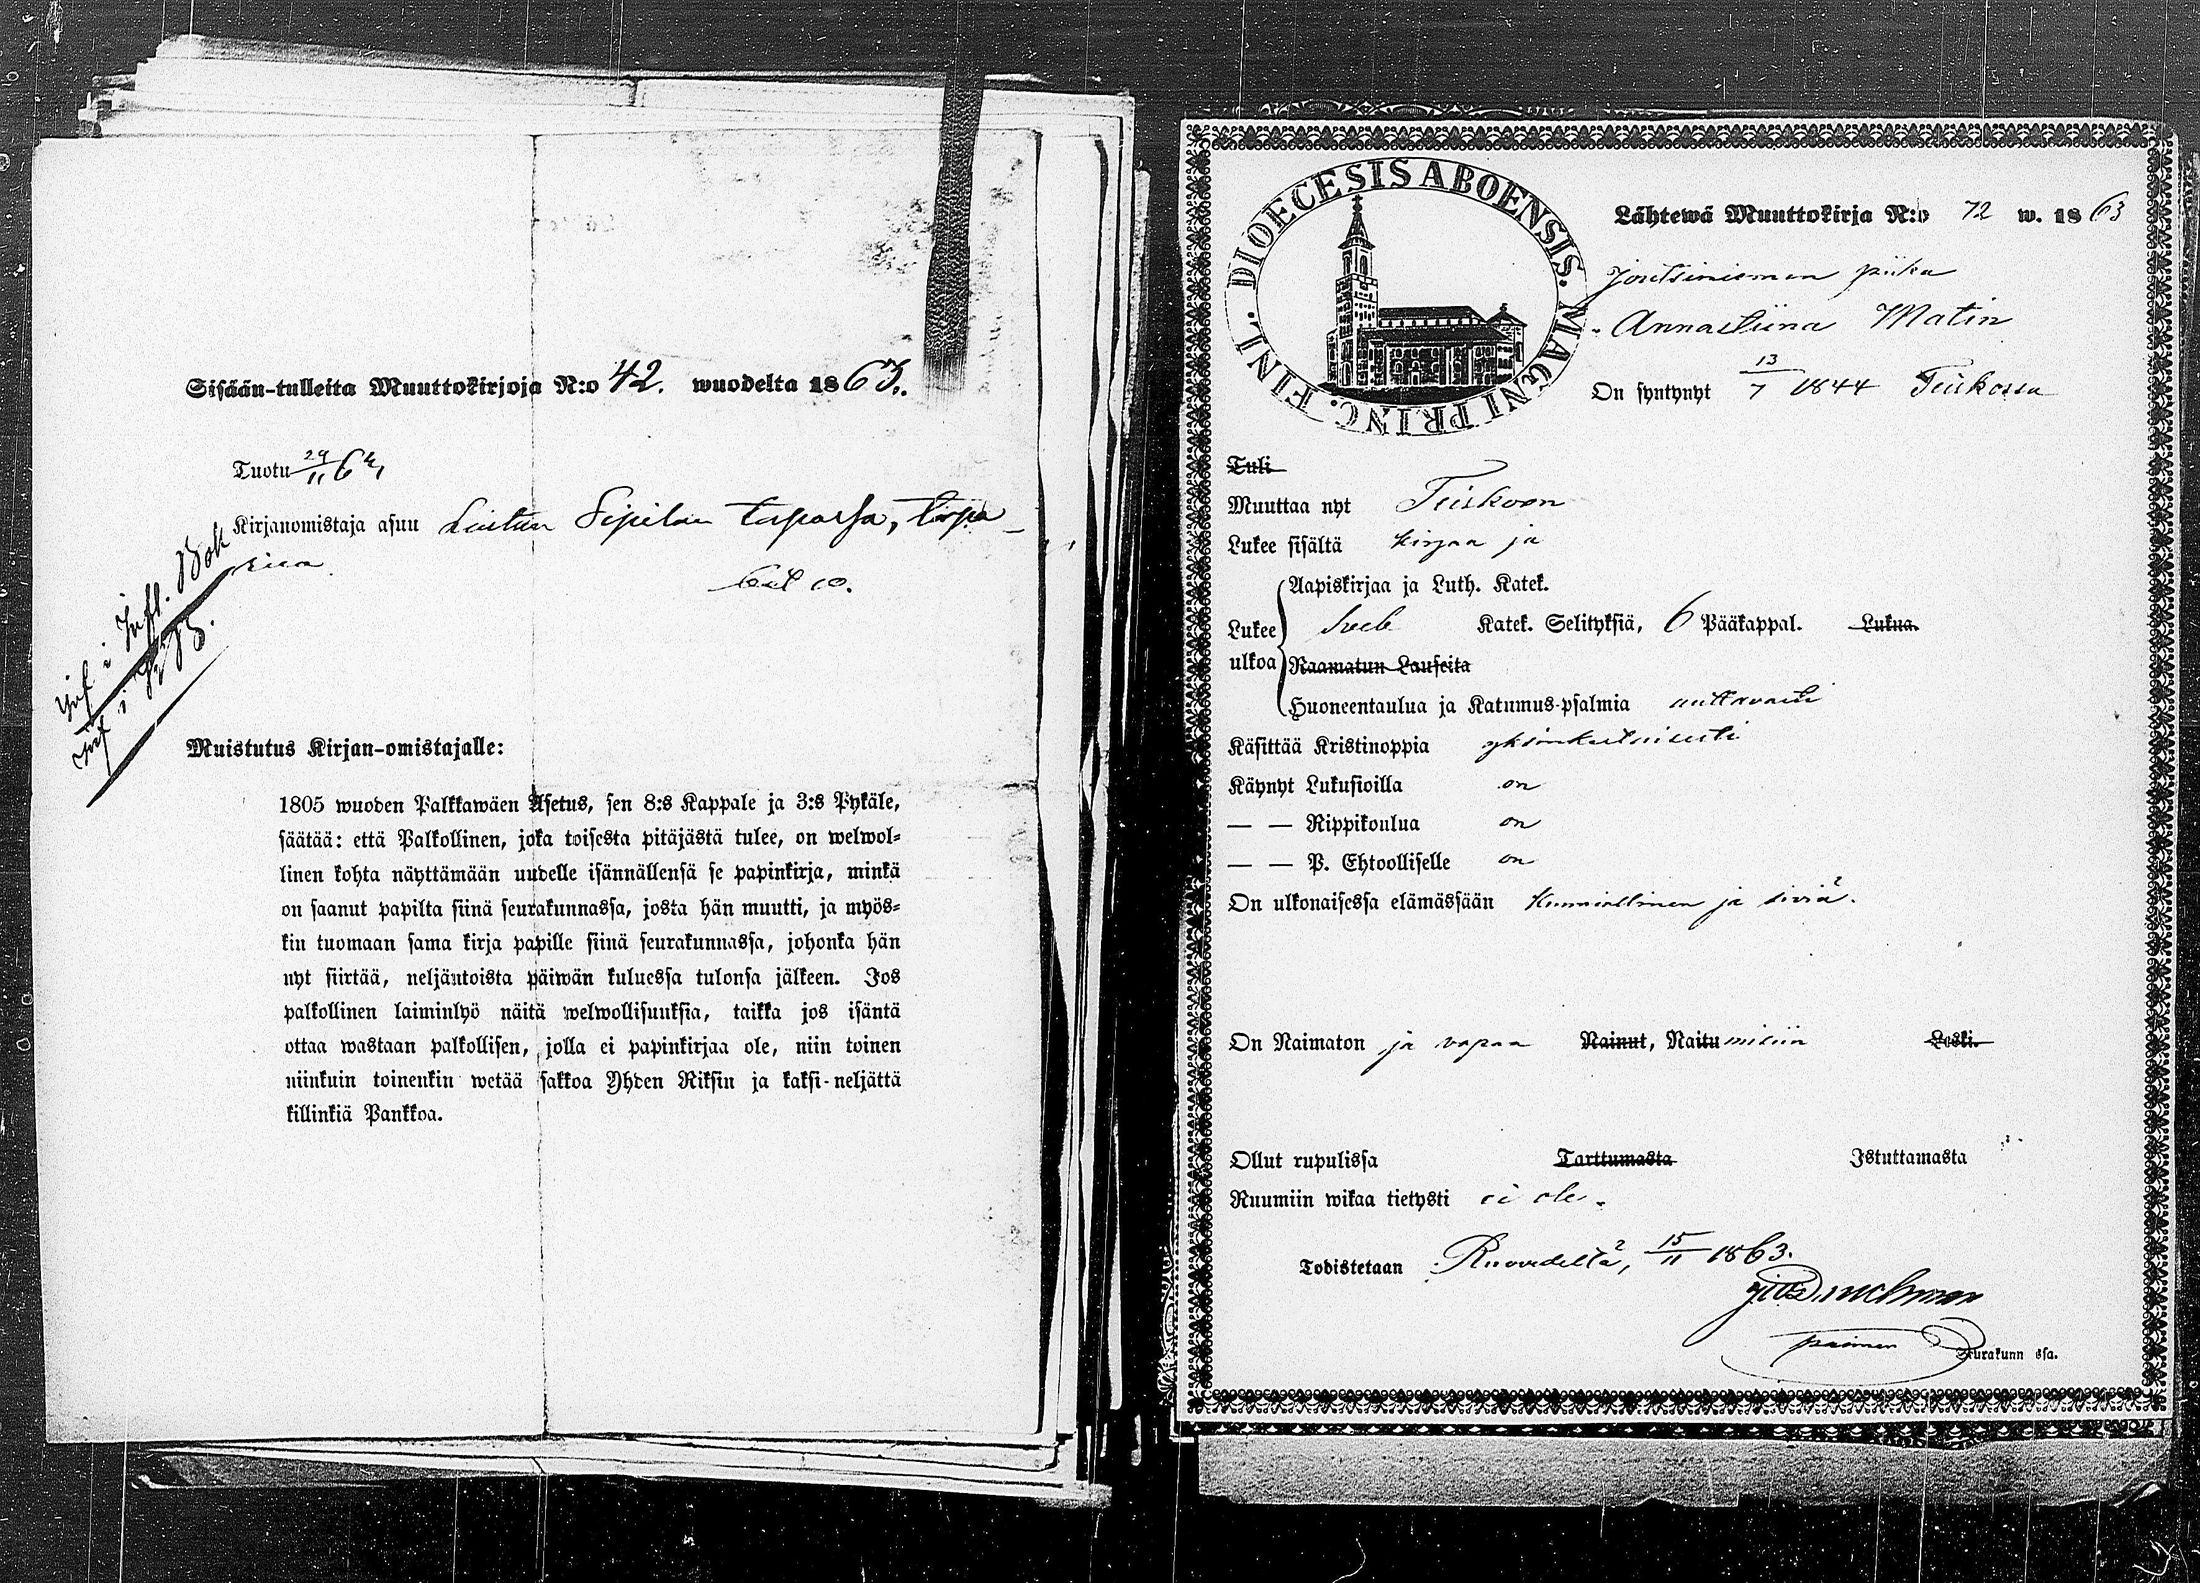 Sisään-tulleita Muuttokirjoja N:o 42. wuodelta 1863.
Tuotu 29/11 63
Kirjanomistaja asuu Sipilän torpassa, torpa-
rina
Inf. i Infl. Bok
Inf. i
Muistutus Kirjan-omistajalle:
1805 wuoden Palkkawäen Asetus, sen 8:s Kappale ja 3:s Pykäle,
säätää: että Palkollinen, joka toisesta pitäjästä tulee, on welwol-
linen kohta näyttämään uudelle isännällensä se papinkirja, minkä
on saanut papilta siinä seurakunnassa, josta hän muutti, ja myös-
kin tuomaan sama kirja papille siinä seurakunnassa, johonka hän
nyt siirtää, neljäntoista päiwän kuluessa tulonsa jälkeen. Jos
palkollinen laiminlyö näitä welwollisuuksia, taikka jos isäntä
ottaa wastaan palkollisen, jolla ei papinkirjaa ole, niin toinen
niinkuin toinenkin wetää sakkoa Yhden Riksin ja kaksi-neljättä
killinkiä Pankkoa.
FINL. DIOECESIS ABOENSIS. MAGNI PRINC.
Lähtewä Muuttokirja N:o 72 w. 1863
Joutsiniemen piika
Annastiina Matin
On syntynyt 13/7 1844 Teiskossa
Tuli
Muuttaa nyt Teiskoon
Lukee sisältä kirjaa ja
Aapiskirjaa ja Luth. Katek.
Lukee ulkoa Sveb Katek. Selityksiä, 6 Pääkappal. Lukua.
Raamatun Lauseita
Huoneentaulua ja Katumus-psalmia auttavasti
Käsittää Kristinoppia yksinkertaisesti
Käynyt Lukusioilla on
— — Rippikoulua on
— — P. Ehtoolliselle on
On ulkonaisessa elämässään kunniallinen ja siviä.
On Naimaton ja vapaa Nainut, Naitumisiin Leski.
Ollut rupulissa Tarttumasta Istuttamasta
Ruumiin wikaa tietysti ei ole.
Todistetaan Ruovedeltä, 15/11 1863.
paimen Seurakunn ssa.